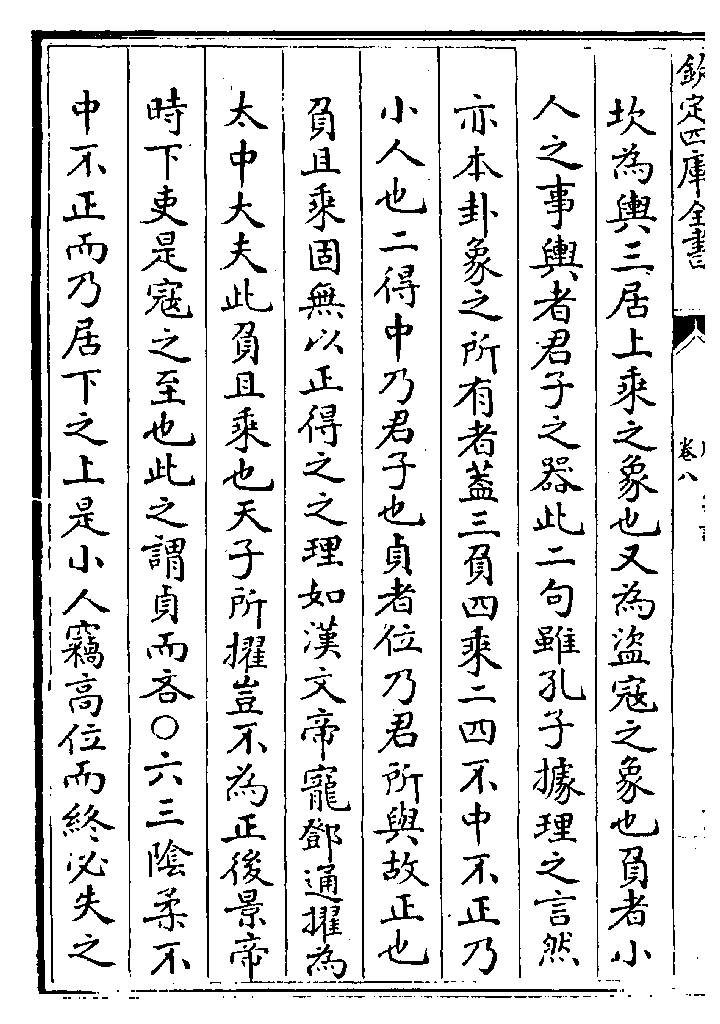 欽定四庫全書
卷八
坎為輿三居上乘之象也又為盜寇之象也負者小
人之事輿者君子之器此二句雖孔子據理之言然
亦本卦象之所有者蓋三負四乘二四不中不正乃
小人也二得中乃君子也貞者位乃君所與故正也
負且乘固無以正得之之理如漢文帝寵鄧通擢為
太中大夫此負且乘也天子所擢豈不為正後景帝
時下吏是寇之至也此之謂貞而吝○六三陰柔不
中不正而乃居下之上是小人竊高位而終必失之